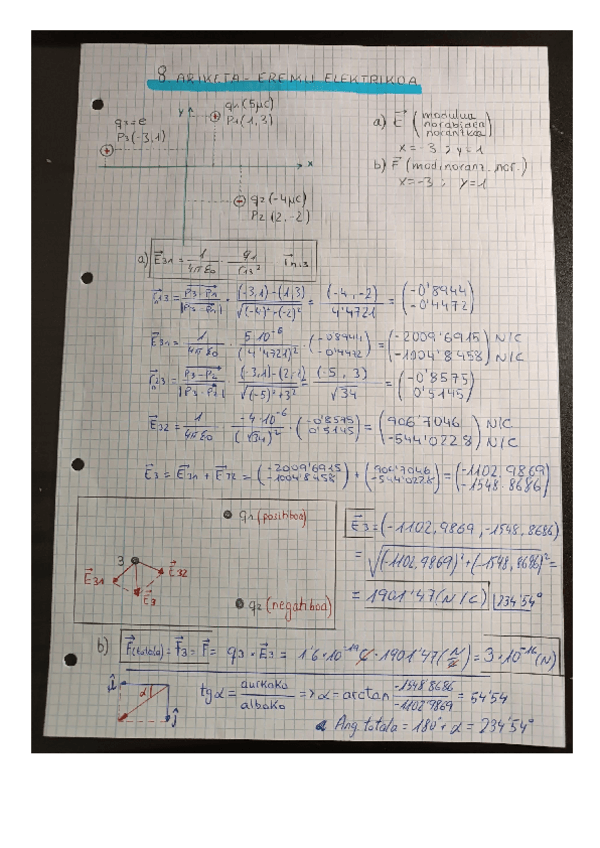 8 ARIKETA - EREMU ELEKTRIKOA
y
q1(5μC)
P1(1,3)
q3=e
P3(-3,1)
x
q2(-4μC)
P2(2,-2)
a) E (modulua
norabidea
norantzkoa)
x=-3 ; y=1
b) F (mod.norant. nor.)
x=-3 ; y=1
a) E31 = 1/4πε0 · q1/r13²
r13 = P3-P1/|P3-P1| = (-3,1)-(1,3)/√(-4)²-(-2)² = (-4,-2)/4'4721 = (-0'8944
-0'4472)
E31 = 1/4πε0 · 5·10⁻⁶/(4'4721)² · (-0'8944
-0'4472) = (-2009'6915) N/C
(-1004'8458) N/C
r23 = P3-P2/|P3-P2| = (-3,1)-(2,-2)/√(-5)²+3² = (-5,3)/√34 = (-0'8575
0'5145)
E32 = 1/4πε0 · -4·10⁻⁶/(√34)² · (-0'8575
0'5145) = (906'7046) N/C
(-544'0228) N/C
E3 = E31 + E32 = (-2009'6915
-1004'8458) + (906'7046
-544'0228) = (-1102,9869
-1548.8686)
q1 (positiboa)
3
E31
E32
E3
q2 (negatiboa)
E3 = (-1102,9869, -1548,8686)
= √(-1102,9869)²+(-1548,8686)² =
= 1901'47 (N/C) 234'54°
b) F(totala) = F3 = F = q3·E3 = 1'6·10⁻¹⁹ C · 1901'47 (N/C) = 3·10⁻¹⁶ (N)
α
tgα = aurkako/alboko => α = arctan -1548'8686/-1102'9869 = 54'54
Ang. totala = 180° + α = 234'54°